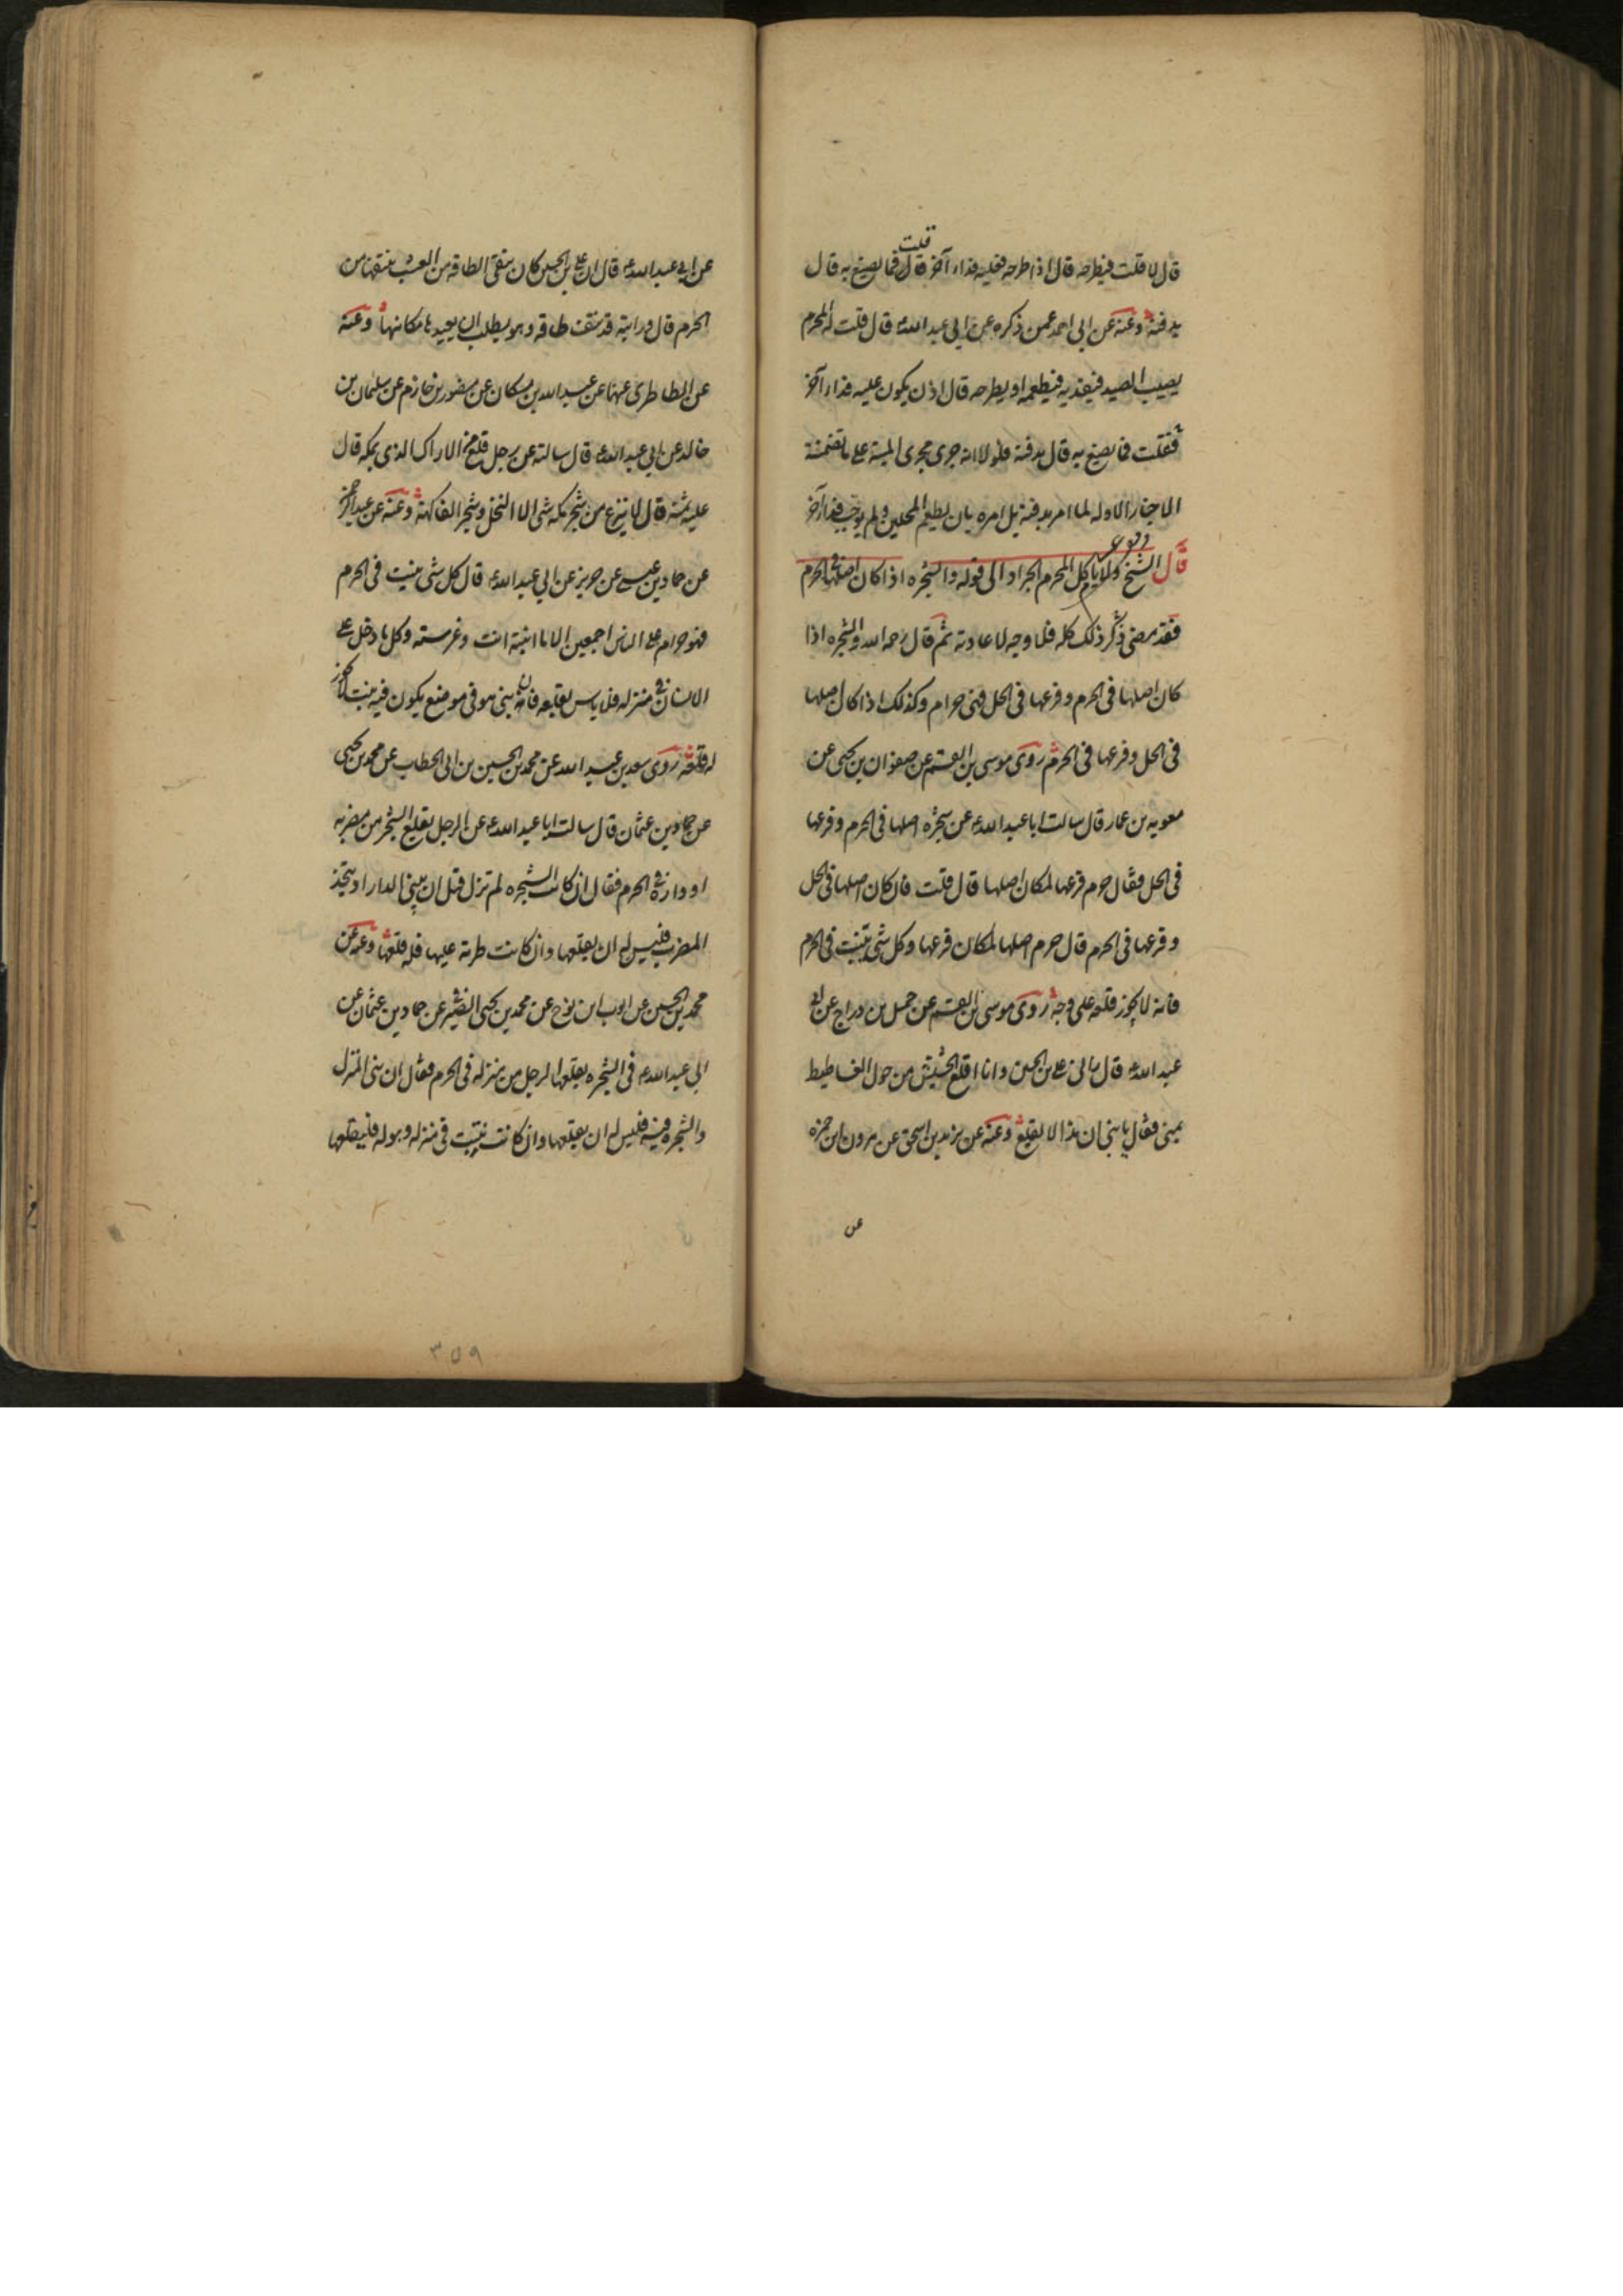 قال لا قلت فيطرحه قال اذا طرحه فعليه فداء آخر قال قلت فما يصنع به قال
يدفنه وعنه عن ابى احمد عمن ذكره عن ابى عبد الله ع قال قلت له المحرم
يصيب الصيد فيفديه فيطعمه او يطرحه قال اذن يكون عليه فداء آخر
فقلت فما يصنع به قال يدفنه فلولا انه جرى مجرى الميتة على ما تضمنته
الاخبار الاوله لما امر بدفنه بل امره بان يطعم المحلين ولم يوجب فداء آخر
قال الشيخ ولا ياكل المحرم الجراد الى قوله والشجره اذا كان اصلها فى الحرم
فقد مضى ذكر ذلك كله فلا وجه لاعادته ثم قال رحمه الله والشجره اذا
كان اصلها فى الحرم وفرعها فى الحل فهى حرام وكذلك اذا كان اصلها
فى الحل وفرعها فى الحرم روى موسى بن القسم عن صفوان بن يحيى عن
معويه بن عمار قال سالت ابا عبد الله ع عن شجره اصلها فى الحرم وفرعها
فى الحل فقال حرم فرعها لمكان اصلها قال قلت فان كان اصلها فى الحل
وفرعها فى الحرم قال حرم اصلها لمكان فرعها وكل شى ينبت فى الحرم
فانه لا يجوز قلعه على وجه روى موسى بن القسم عن جميل بن دراج عن ابى
عبد الله ع قال رانى على بن الحسين وانا اقلع الحشيش من حول الفساطيط
بمنى فقال يا بنى ان هذا لا يقلع وعنه عن يزيد بن اسحق عن هرون ابن حمزه
عن
عن ابى عبد الله ع قال ان على بن الحسين كان يتقى الطاقه من العشب ينتفها من
الحرم قال ورايته قد نتف طاقه وهو يطلب ان يعيدها مكانها وعنه
عن الطاطرى عنهما عن عبد الله بن مسكان عن منصور بن حازم عن سليمان بن
خالد عن ابى عبد الله ع قال سالته عن رجل قلع من الاراك الذى بمكه قال
عليه ثمنه قال لا ينزع من شجر مكه شى الا النخل وشجر الفاكهة وعنه عن عبد الرحمن
عن حماد بن عيسى عن حريز عن ابى عبد الله ع قال كل شى ينبت فى الحرم
فهو حرام على الناس اجمعين الا ما انبته انت وغرسته وكل ما دخل على
الانسان فى منزله فلا باس بقلعه فان بنى هو فى موضع يكون فيه نبت لا يجوز
له قلعه روى سعد بن عبد الله عن محمد بن الحسين بن ابى الخطاب عن محمد بن يحيى
عن حماد بن عثمان قال سالت ابا عبد الله ع عن الرجل يقلع الشجر من مضربه
او داره فى الحرم فقال ان كانت الشجره لم تزل قبل ان يبنى الدار او يتخذ
المضرب فليس له ان يقلعها وان كانت طريه عليها فله قلعها وعنه عن
محمد بن الحسين عن ايوب ابن نوح عن محمد بن يحيى الصيرفى عن حماد بن عثمان عن
ابى عبد الله ع فى الشجره يقلعها الرجل من منزله فى الحرم فقال ان بنى المنزل
والشجره فيه فليس له ان يقلعها وان كانت نبتت فى منزله وهو له فليقلعها
٣٥٩